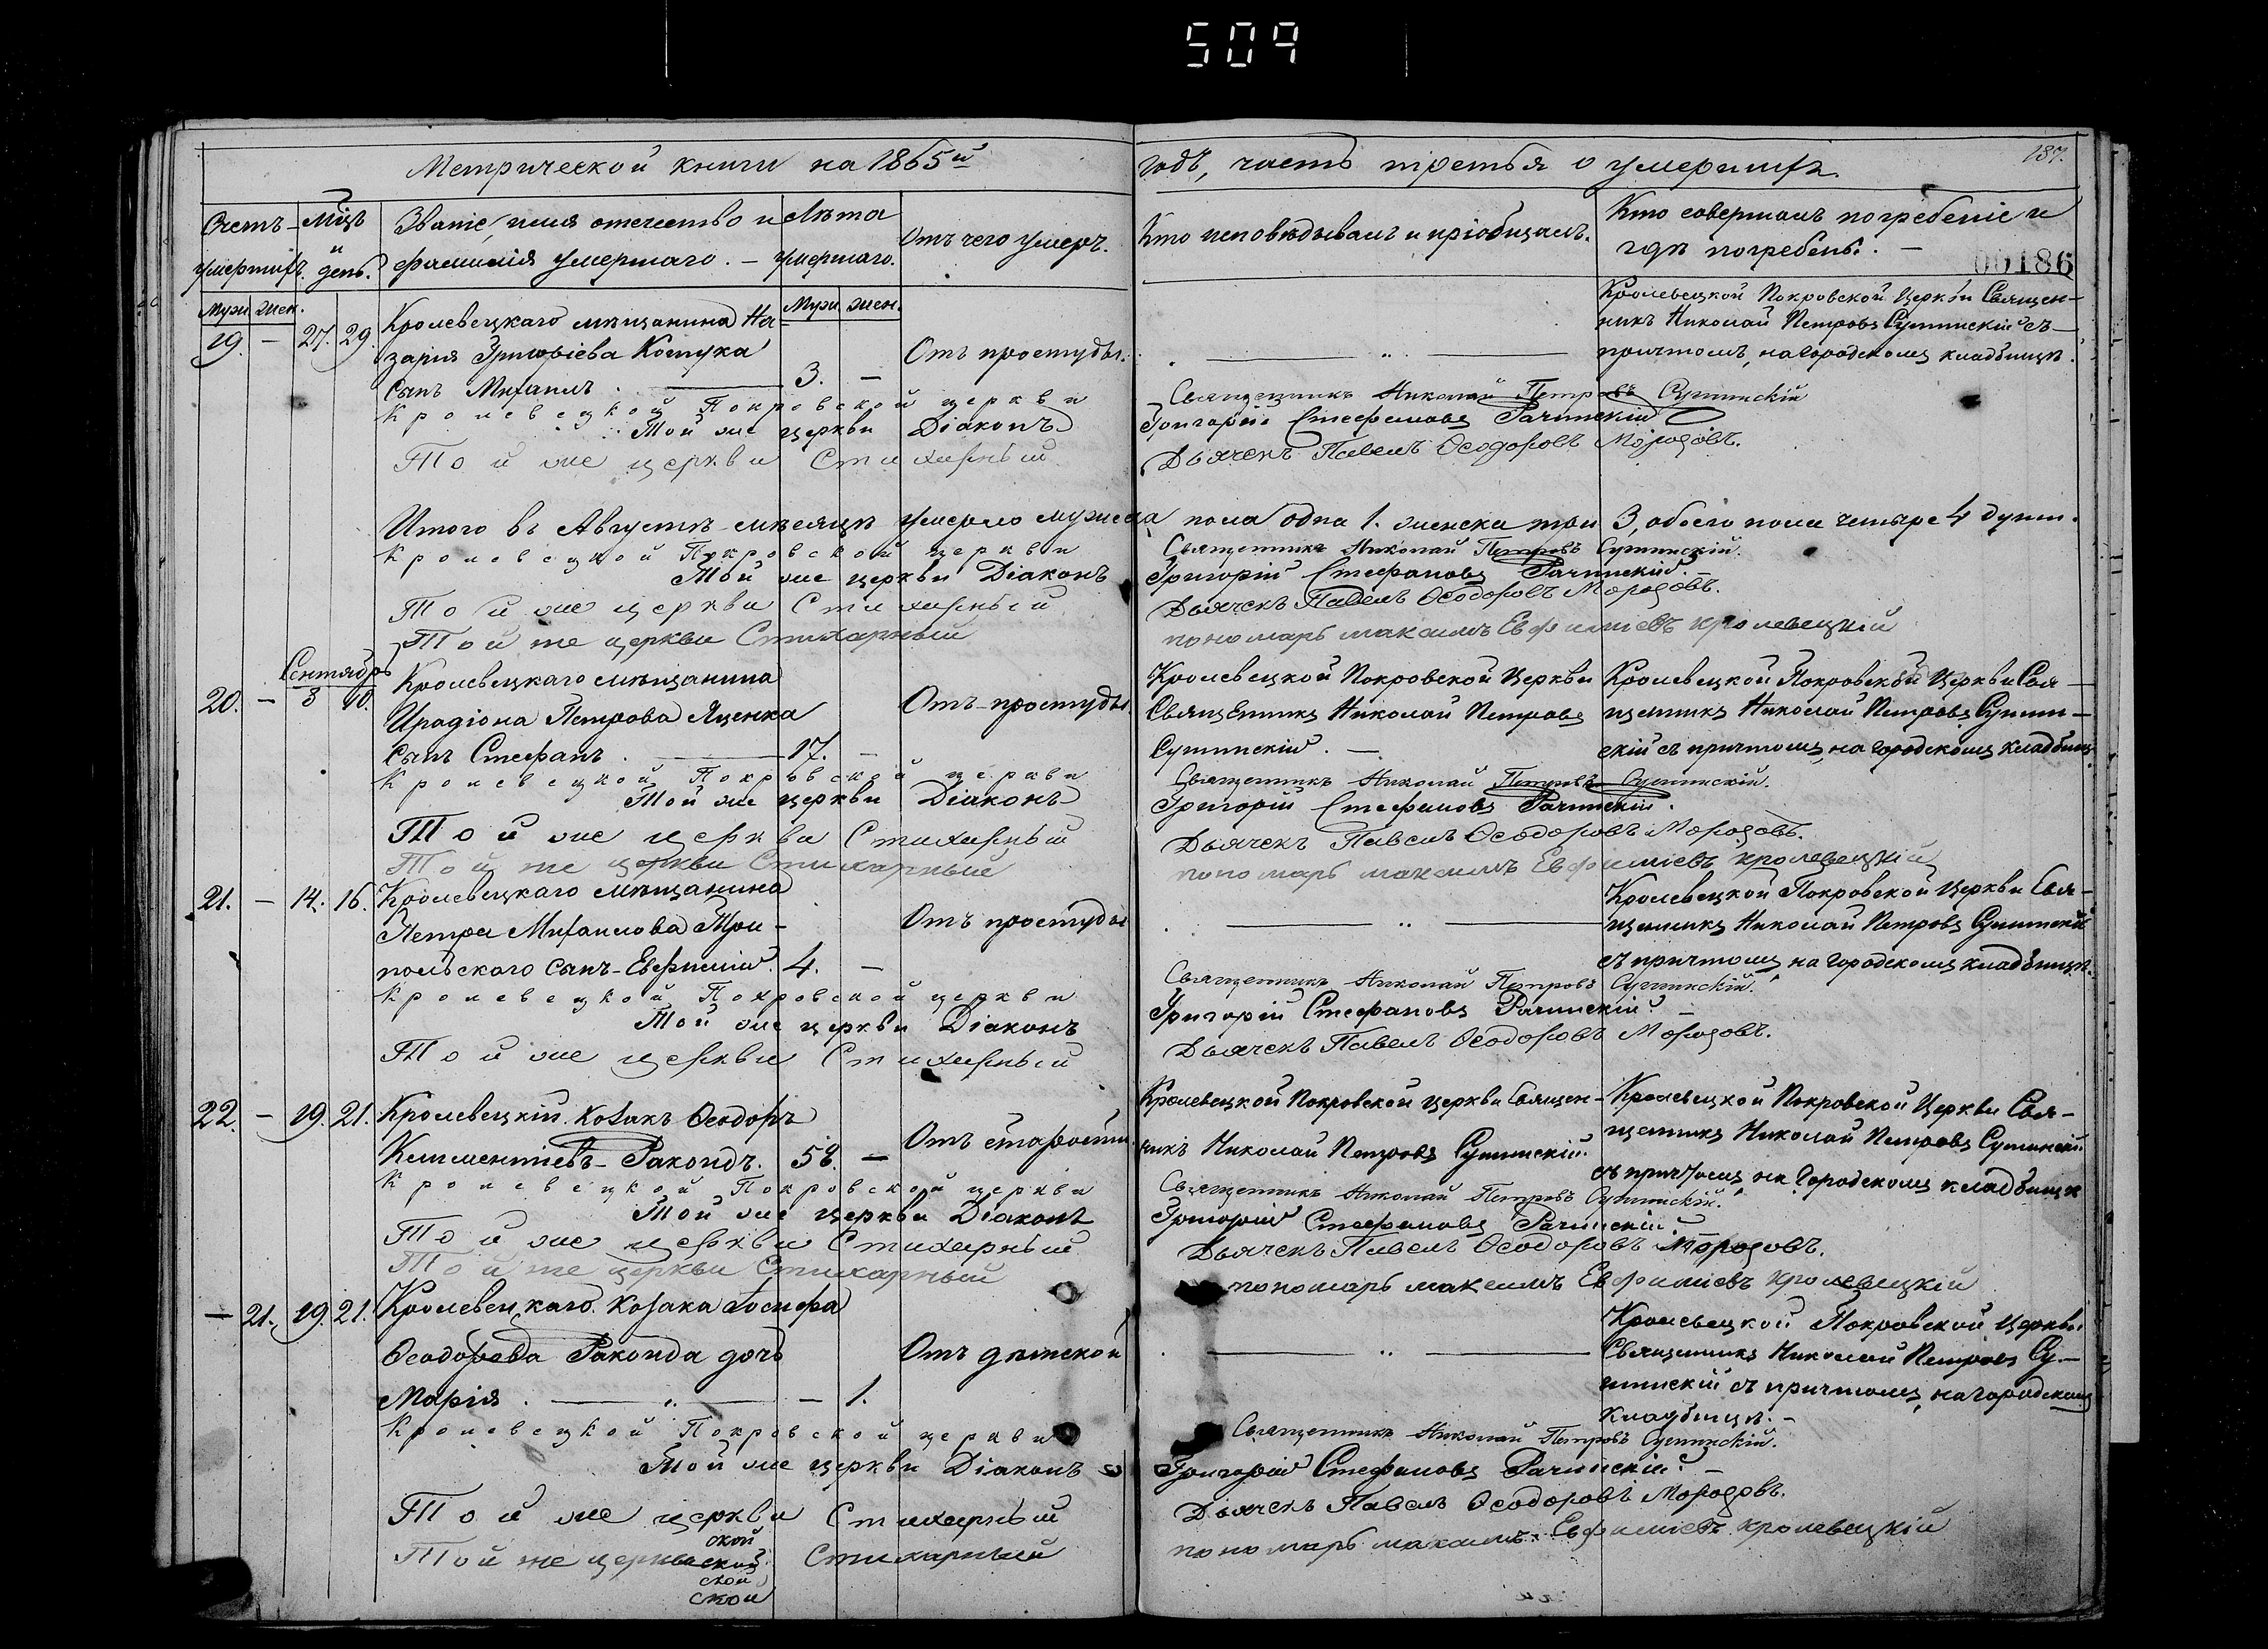 509
Метрической книги на 1865й
годъ, часть третья о умершихъ.
187.
00186
Счетъ умершихъ.
Мцъ и день.
Званіе, имя отчество и фамилія умершаго.
Лѣта умершаго.
Отъ чего умеръ.
Кто исповѣдывалъ и пріобщалъ.
Кто совершалъ погребеніе и
гдѣ погребенъ.
Муж. Жен.
Муж. Жен.
19. — 27. 29.
Кролевецкаго мѣщанина На-
зарія Григоріева Костука
сынъ Михаилъ.
3. —
Отъ простуды.
Кролевецкой Покровской Церкви Священ-
никъ Николай Петровъ Сушинскій съ
причтомъ, на городскомъ кладбищѣ.
Кролевецкой Покровской церкви Священникъ Николай Петровъ Сушинскій
Той же церкви Діаконъ Григорій Стефановъ Рачинскій
Той же церкви Стихарный Дьячекъ Павелъ Ѳеодоровъ Морозовъ.
Итого въ Августѣ мѣсяцѣ умерло мужеска пола одна 1. женска три 3, обоего пола четыре 4 души.
Кролевецкой Покровской церкви Священникъ Николай Петровъ Сушинскій.
Той же церкви Діаконъ Григорій Стефановъ Рачинскій.
Той же церкви Стихарный Дьячекъ Павелъ Ѳеодоровъ Морозовъ.
Той же церкви Стихарный пономарь максимъ Евфиміевъ кролевецкій
Сентябрь
20. — 8 10.
Кролевецкаго мѣщанина
Иродіона Петрова Яценка
сынъ Стефанъ.
17. —
Отъ простуды.
Кролевецкой Покровской Церкви
Священникъ Николай Петровъ
Сушинскій.
Кролевецкой Покровской Церкви Свя-
щенникъ Николай Петровъ Сушин-
скій съ причтомъ, на городскомъ кладбищѣ
Кролевецкой Покровской церкви Священникъ Николай Петровъ Сушинскій.
Той же церкви Діаконъ Григорій Стефановъ Рачинскій.
Той же церкви Стихарный Дьячекъ Павелъ Ѳеодоровъ Морозовъ.
Той же церкви Стихарный пономарь максимъ Евфиміевъ кролевецкій
21. — 14. 16.
Кролевецкаго мѣщанина
Петра Михаилова Три-
польскаго сынъ Евфимій.
4. —
Отъ простуды
Кролевецкой Покровской Церкви Свя-
щенникъ Николай Петровъ Сушинскій
съ причтомъ, на городскомъ кладбищѣ.
Кролевецкой Покровской церкви Священникъ Николай Петровъ Сушинскій.
Той же церкви Діаконъ Григорій Стефановъ Рачинскій.
Той же церкви Стихарный Дьячекъ Павелъ Ѳеодоровъ Морозовъ.
22. — 19. 21.
Кролевецкій козакъ Ѳеодоръ
Климентіевъ Ракоидъ.
58. —
Отъ старости.
Кролевецкой Покровской церкви Священ-
никъ Николай Петровъ Сушинскій.
Кролевецкой Покровской Церкви Свя-
щенникъ Николай Петровъ Сушинскій
съ причтомъ, на городскомъ кладбищѣ
Кролевецкой Покровской церкви Священникъ Николай Петровъ Сушинскій.
Той же церкви Діаконъ Григорій Стефановъ Рачинскій.
Той же церкви Стихарный Дьячекъ Павелъ Ѳеодоровъ Морозовъ.
Той же церкви Стихарный пономарь максимъ Евфиміевъ кролевецкій
— 21. 19. 21.
Кролевецкаго козака Іосифа
Ѳеодорова Ракоида дочь
Марія.
— 1.
Отъ дѣтской
Кролевецкой Покровской Церкви
Священникъ Николай Петровъ Су-
шинскій съ причтомъ, на городскомъ
кладбищѣ.
Кролевецкой Покровской церкви Священникъ Николай Петровъ Сушинскій.
Той же церкви Діаконъ Григорій Стефановъ Рачинскій.
Той же церкви Стихарный Дьячекъ Павелъ Ѳеодоровъ Морозовъ.
Той же церкви Стихарный пономарь максимъ Евфиміевъ кролевецкій
ской
ской
ской